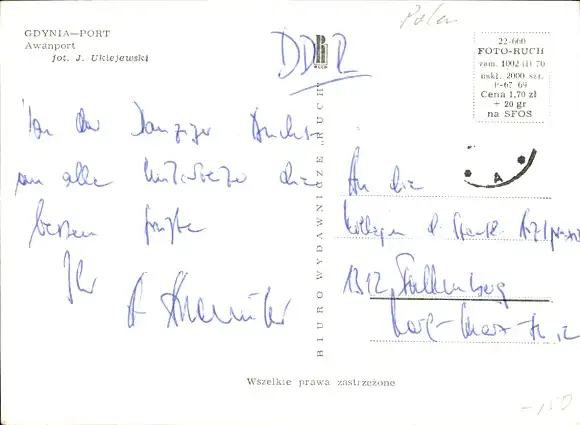 GDYNIA—PORT
Awanport
fot. J. Uklejewski
Polen
DDR
22-660
FOTO-RUCH
zam. 1002 (1) 70
nakł. 2000 szt.
P-67 69
Cena 1,70 zł
+ 20 gr
na SFOS
A
Von der Danziger Bucht
an alle Mitarbeiter die
besten Grüße
Ihr
A.
An die
Kollegen d. Staatl. Arztpraxis
1312 Falkenberg
Karl-Marx-Str. 12
BIUROWYDAWNICZE „RUCH”
Wszelkie prawa zastrzeżone
-150